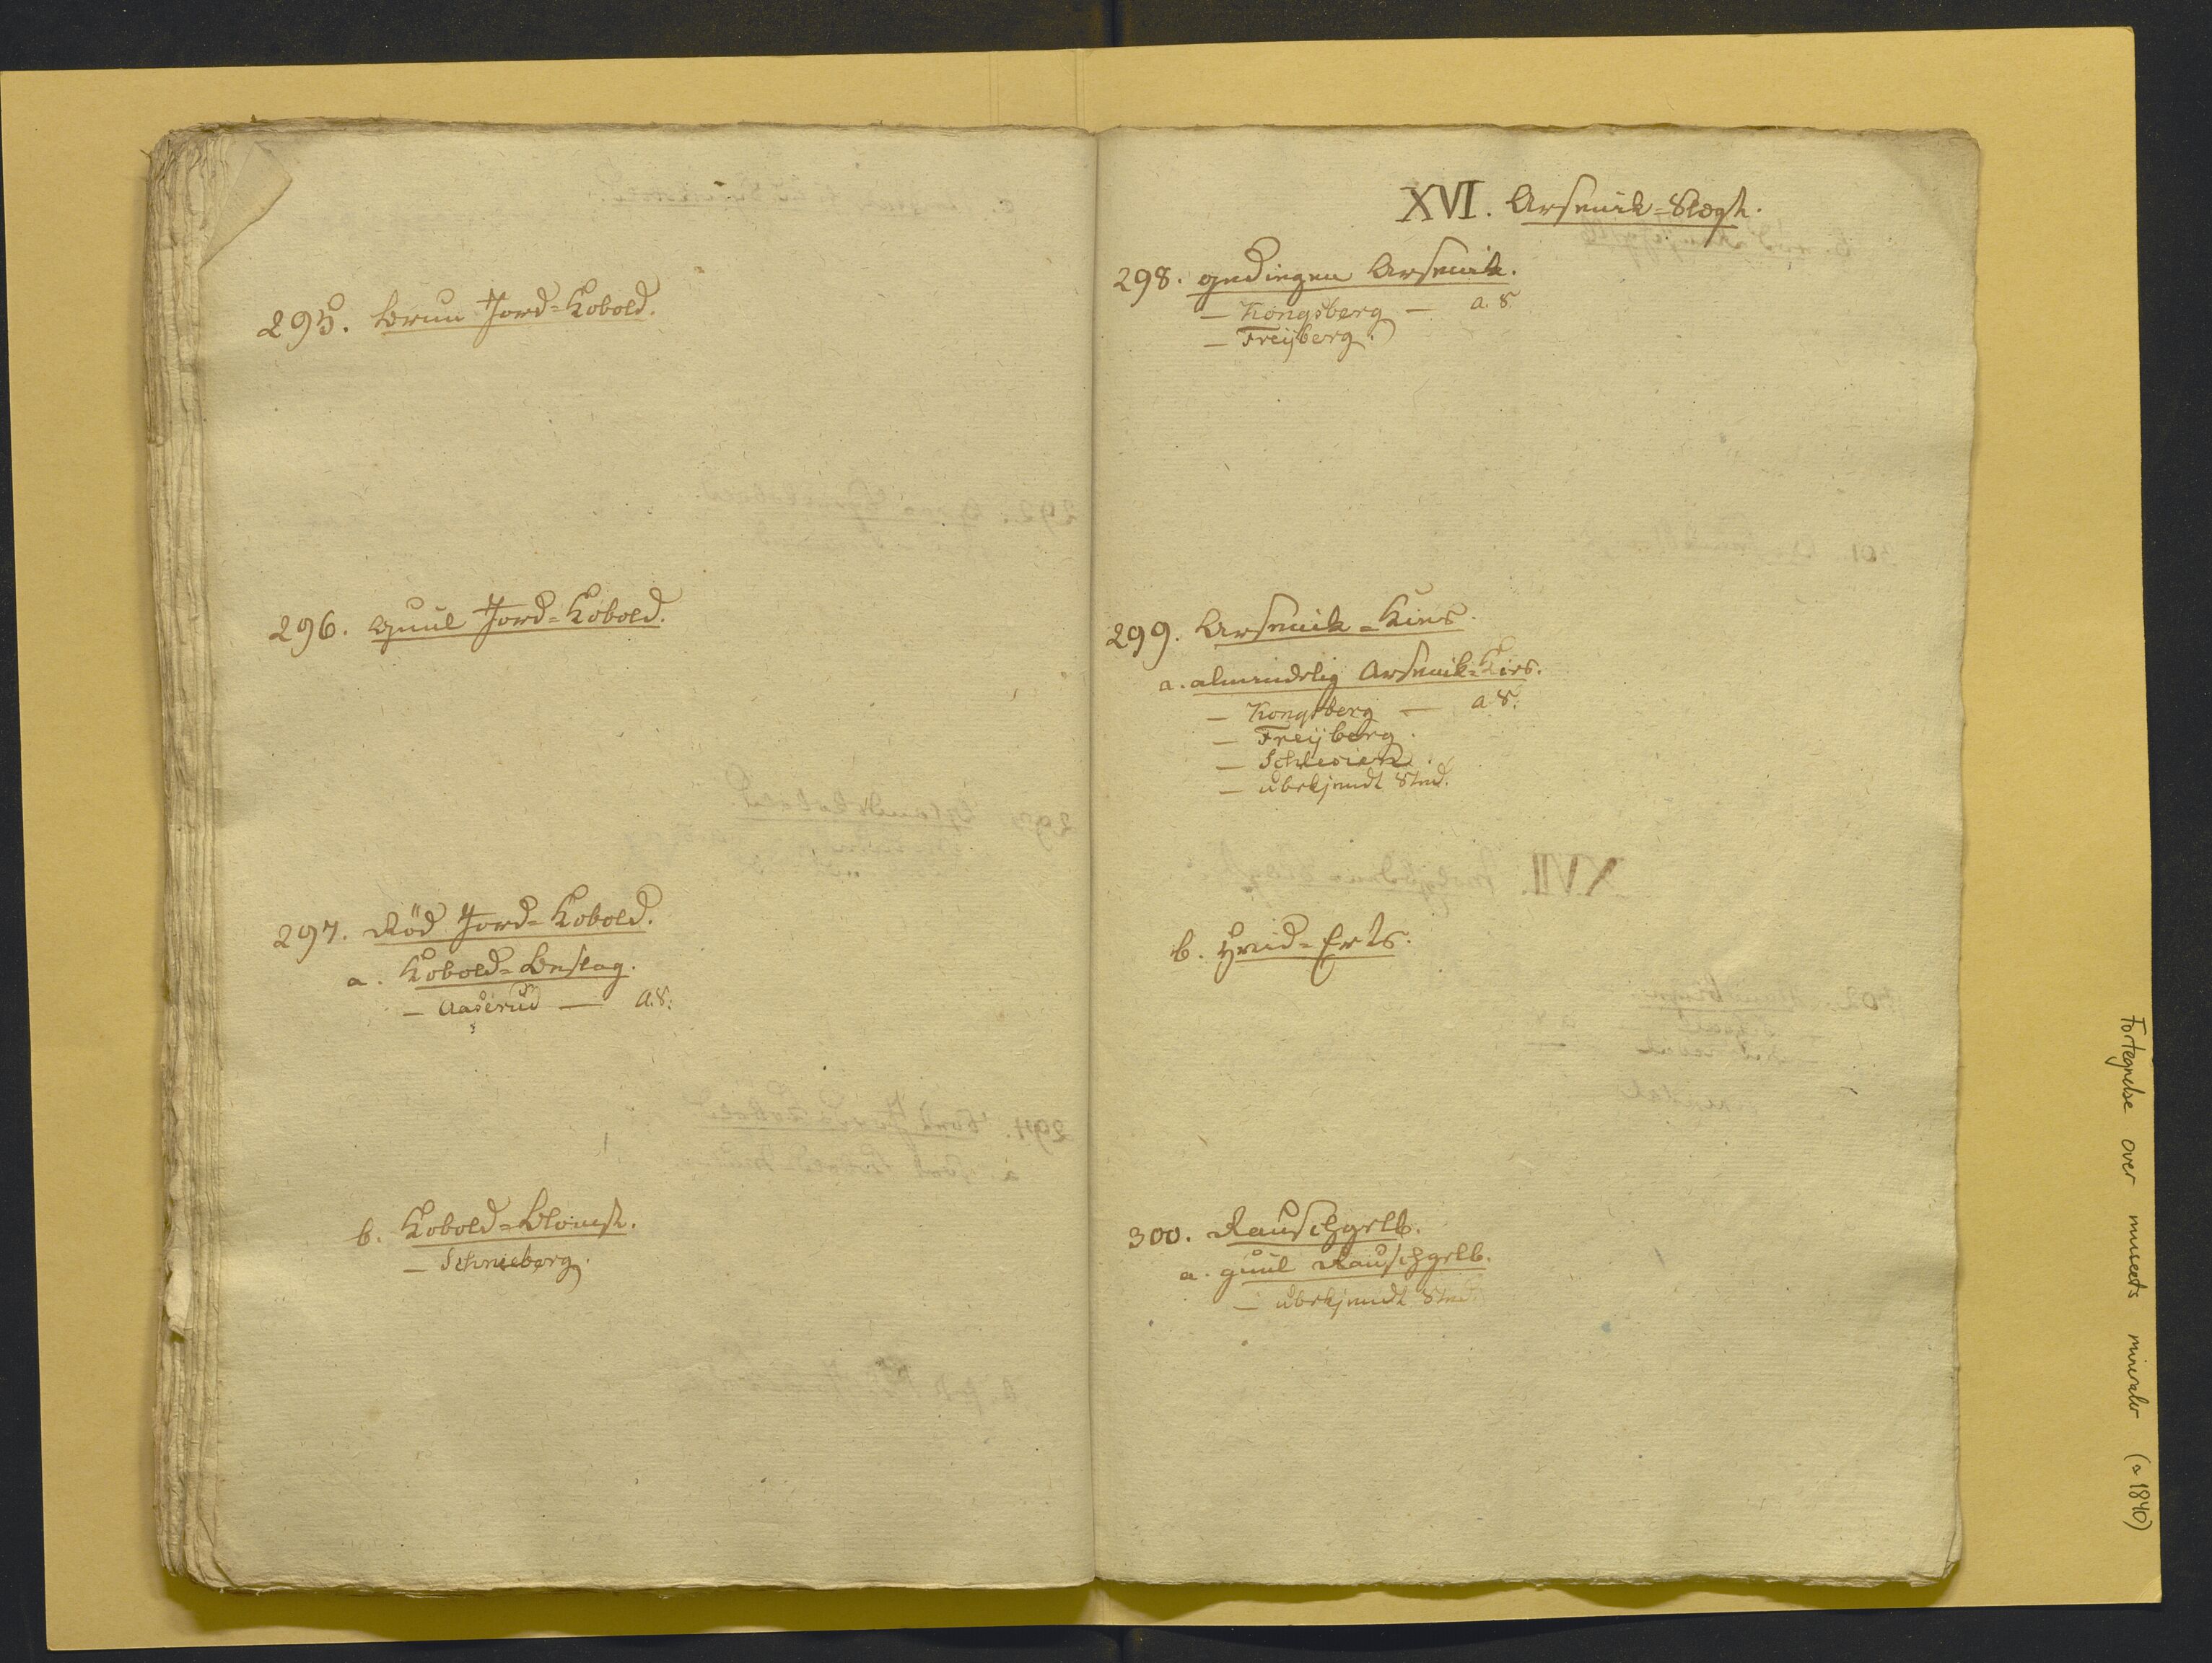 295. brun Jord=Kobold.
296. guul Jord=Kobold.
297. Rød Jord=Kobold.
a. Kobold=Beslag.
— Aaserud — a.8.
b. Kobold=Blomst.
— Schneeberg.
XVI. Arsenik=Slægt.
298. gediegen Arsenik.
— Kongsberg — a.8
— Freyberg.
299. Arsenik=Kies.
a. almindelig Arsenik=Kies.
— Kongsberg — a.8.
— Freyberg.
— ubekjendt Sted.
b. Hvid=Erts.
300. Rauschgelb.
a. guul Rauschgelb.
— ubekjendt Sted.
Fortegnelse over museets mineraler (~1840)